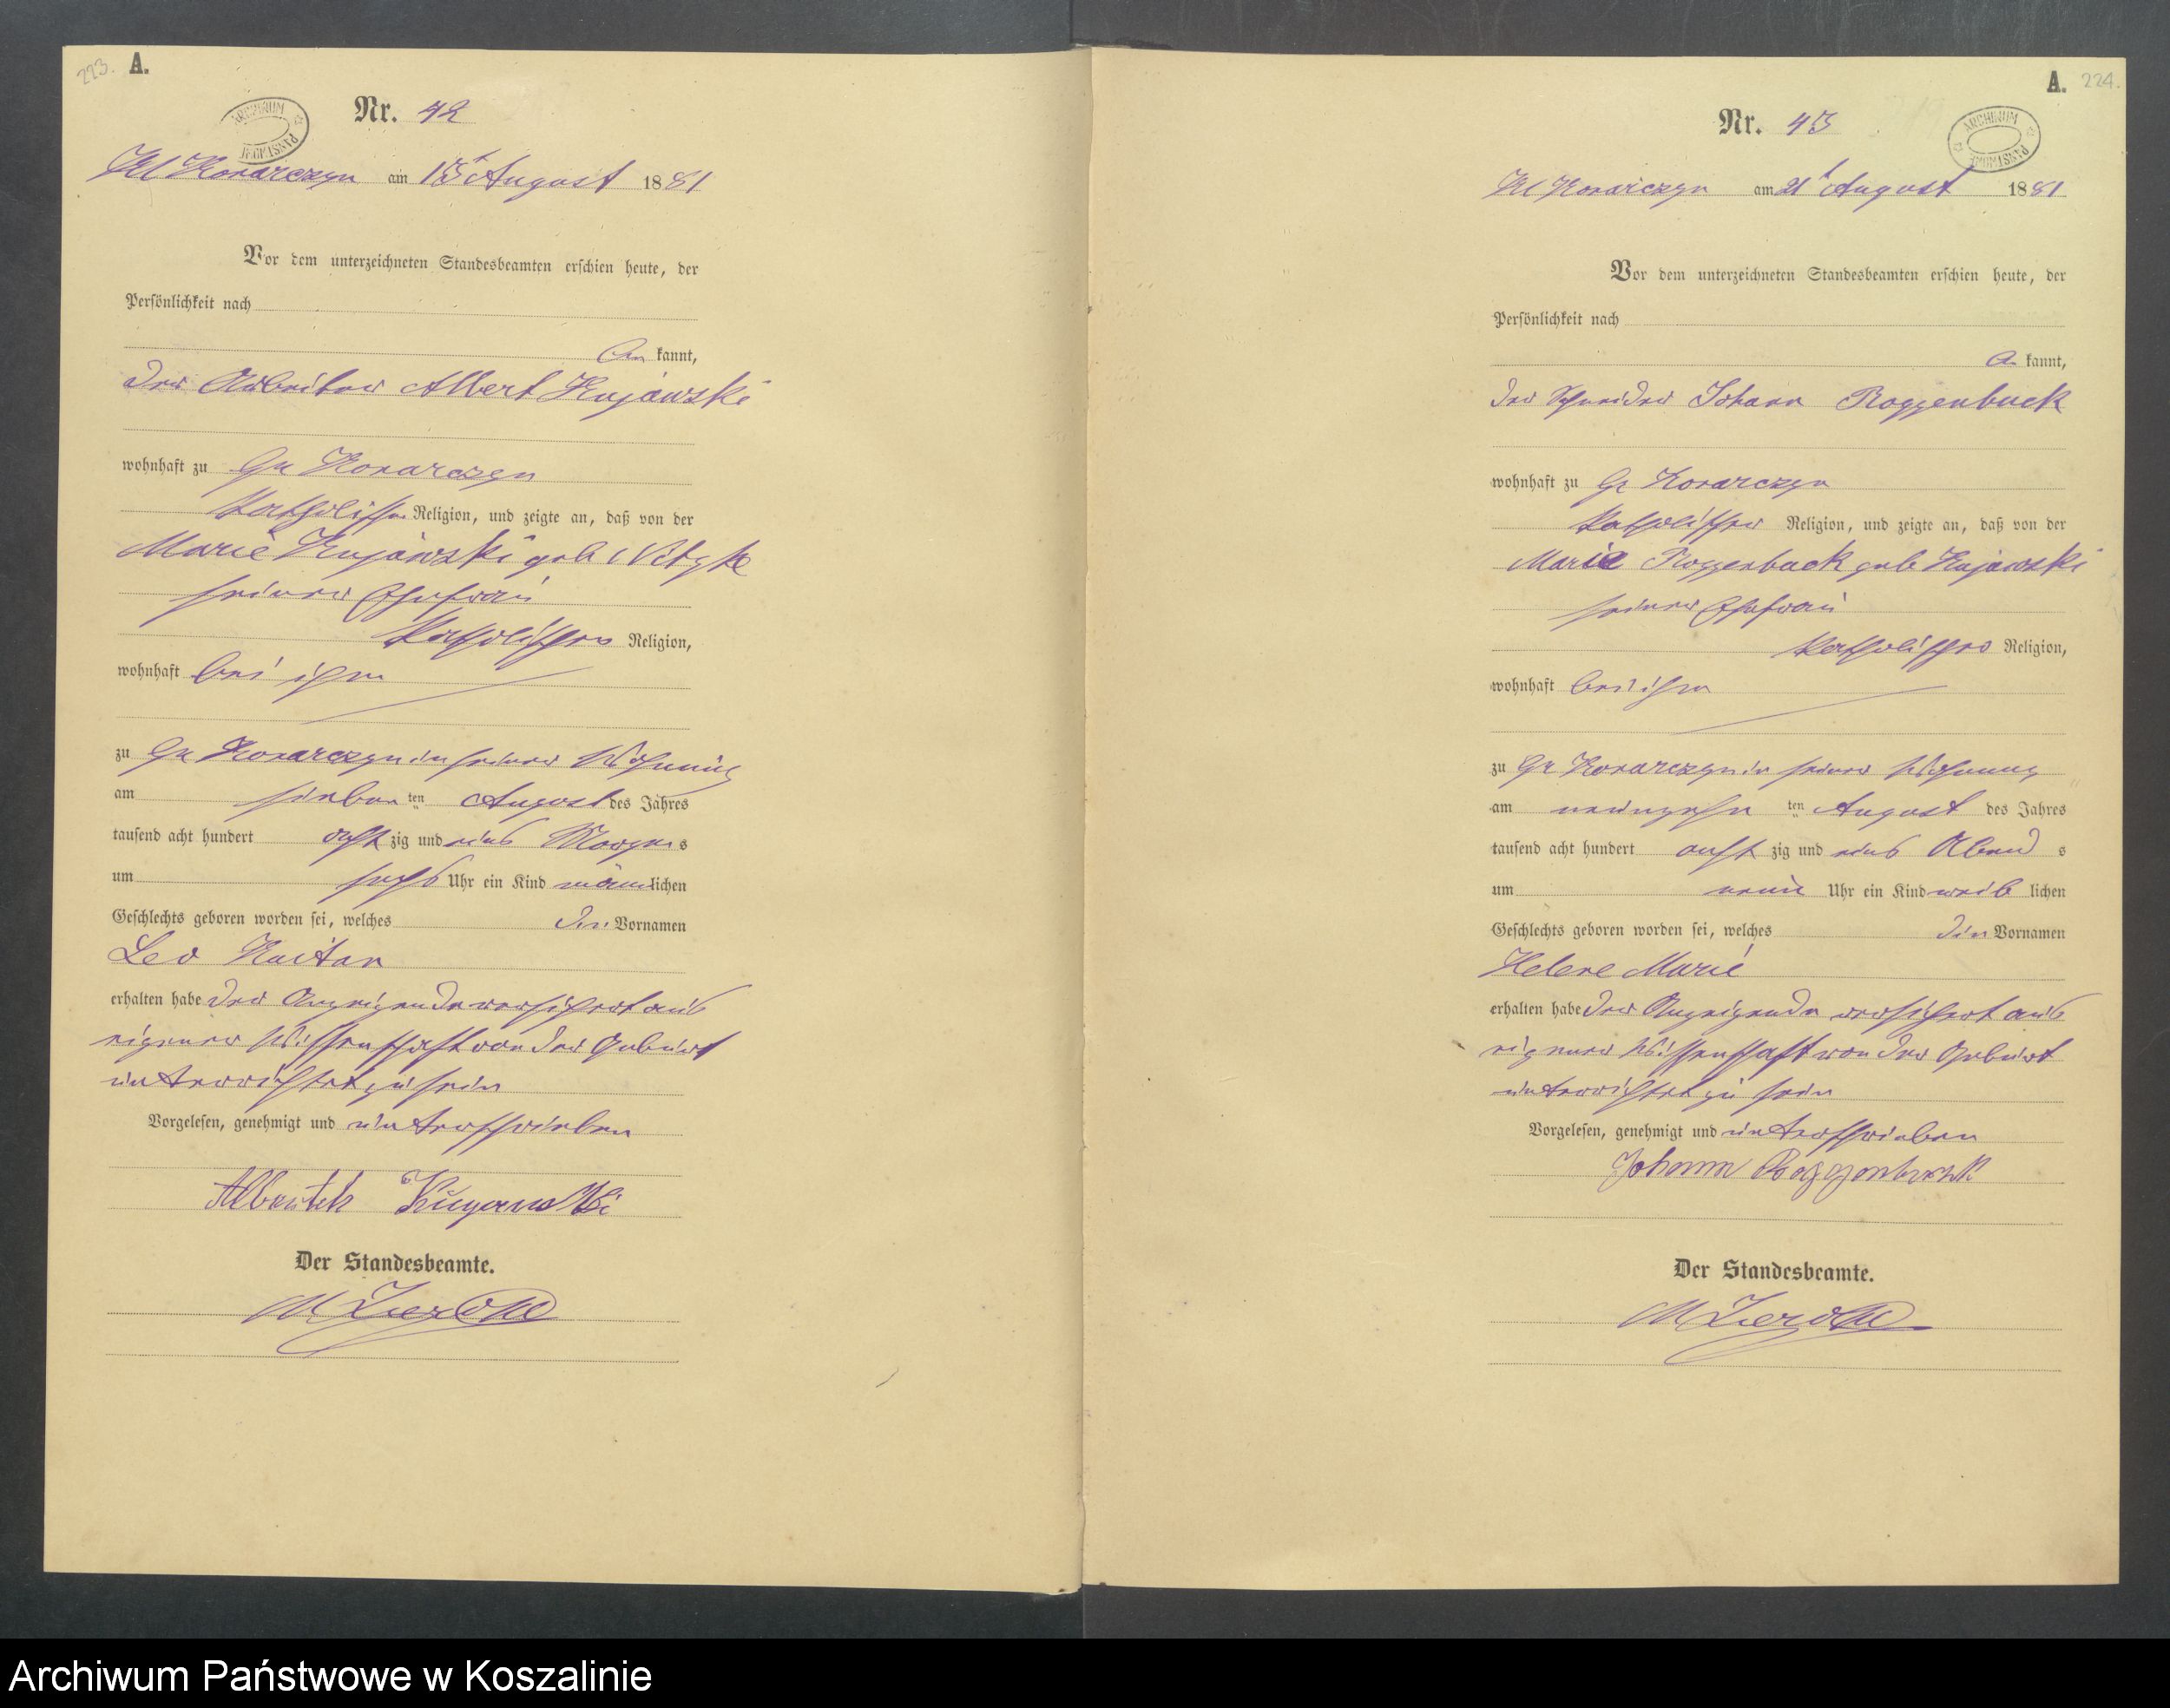 223. A.
ARCHIWUM PAŃSTWOWE
Nr. 42
Kl Konarczyn am 15t August 1881
Vor dem unterzeichneten Standesbeamten erschien heute, der
Persönlichkeit nach
be kannt,
der Arbeiter Albert Kujawski
wohnhaft zu Gr Konarczyn
katholischer Religion, und zeigte an, daß von der
Marie Kujawski geb
seiner Ehefrau
katholischer Religion,
wohnhaft bei ihm
zu Gr Konarczyn in seiner Wohnung
am sieben ten August des Jahres
tausend acht hundert acht zig und eins Morgen s
um sechs Uhr ein Kind männ lichen
Geschlechts geboren worden sei, welches die Vornamen
Leo
erhalten habe der Anzeigende versichert aus
eigener Wissenschaft von der Geburt
unterrichtet zu sein
Vorgelesen, genehmigt und unterschrieben
Der Standesbeamte.
A. 224.
ARCHIWUM PAŃSTWOWE
Nr. 43
Kl Konarczyn am 21t August 1881
Vor dem unterzeichneten Standesbeamten erschien heute, der
Persönlichkeit nach
be kannt,
der Schneider Johann Roggenbuck
wohnhaft zu Gr Konarczyn
katholischer Religion, und zeigte an, daß von der
Marie Roggenbuck geb Kujawski
seiner Ehefrau
katholischer Religion,
wohnhaft bei ihm
zu Gr Konarczyn in seiner Wohnung
am neunzehn ten August des Jahres
tausend acht hundert acht zig und eins Abend s
um neun Uhr ein Kind weib lichen
Geschlechts geboren worden sei, welches die Vornamen
Helene Marie
erhalten habe der Anzeigende versichert aus
eigener Wissenschaft von der Geburt
unterrichtet zu sein
Vorgelesen, genehmigt und unterschrieben
Johann Roggenbuck
Der Standesbeamte.
Archiwum Państwowe w Koszalinie